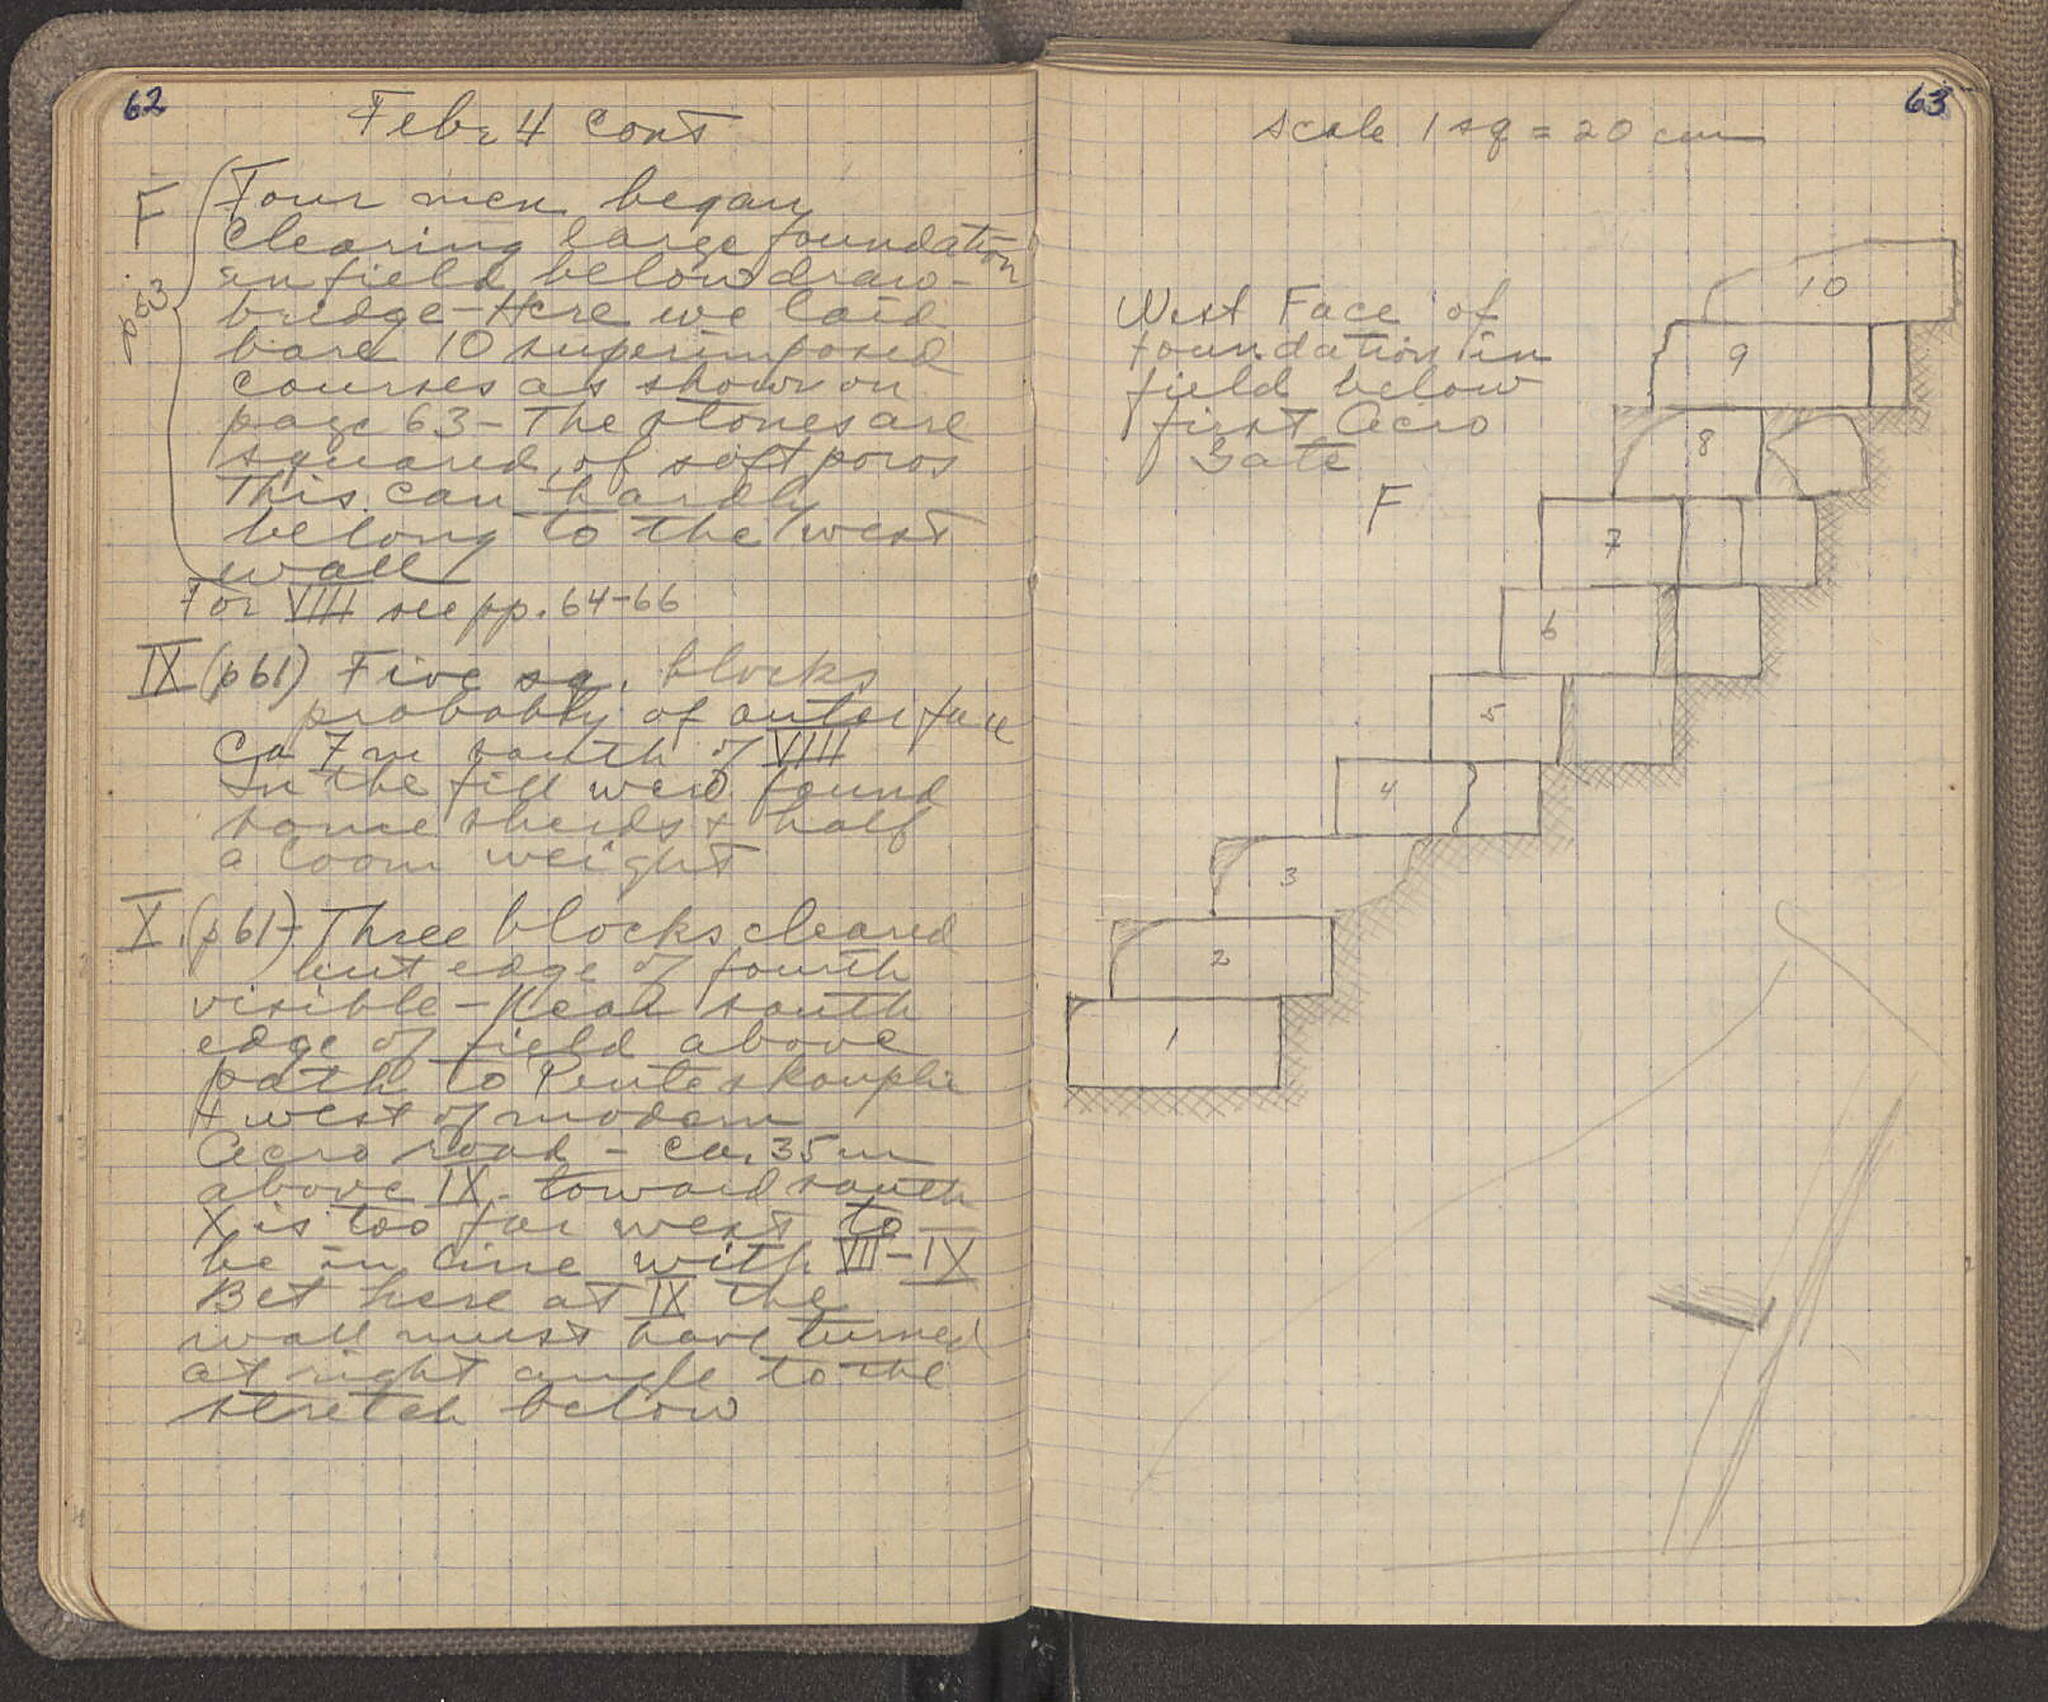 62
Febr 4 cont
F
p 63
Four men began
clearing large foundation
in field below draw-
bridge - Here we laid
bare 10 superimposed
courses as shown on
page 63 - The stones are
squared, of soft poros
This can hardly
belong to the west
wall
For VIII see pp. 64-66
IX (p 61) Five sq. blocks
probably of outer face
Ca 7 m south of VIII
In the fill were found
some sherds + half
a loom weight
X. (p 61) - Three blocks cleared
but edge of fourth
visible - Near south
edge of field above
path to Penteskouphi
+ west of modern
Acro road - ca. 35 m
above IX - toward south
X is too far west to
be in line with VII - IX
Bet here at IX the
wall must have turned
at right angle to the
stretch below
63
scale 1 sq = 20 cm
West Face of
foundation in
field below
first Acro
Gate
F
10
9
8
7
6
5
4
3
2
1